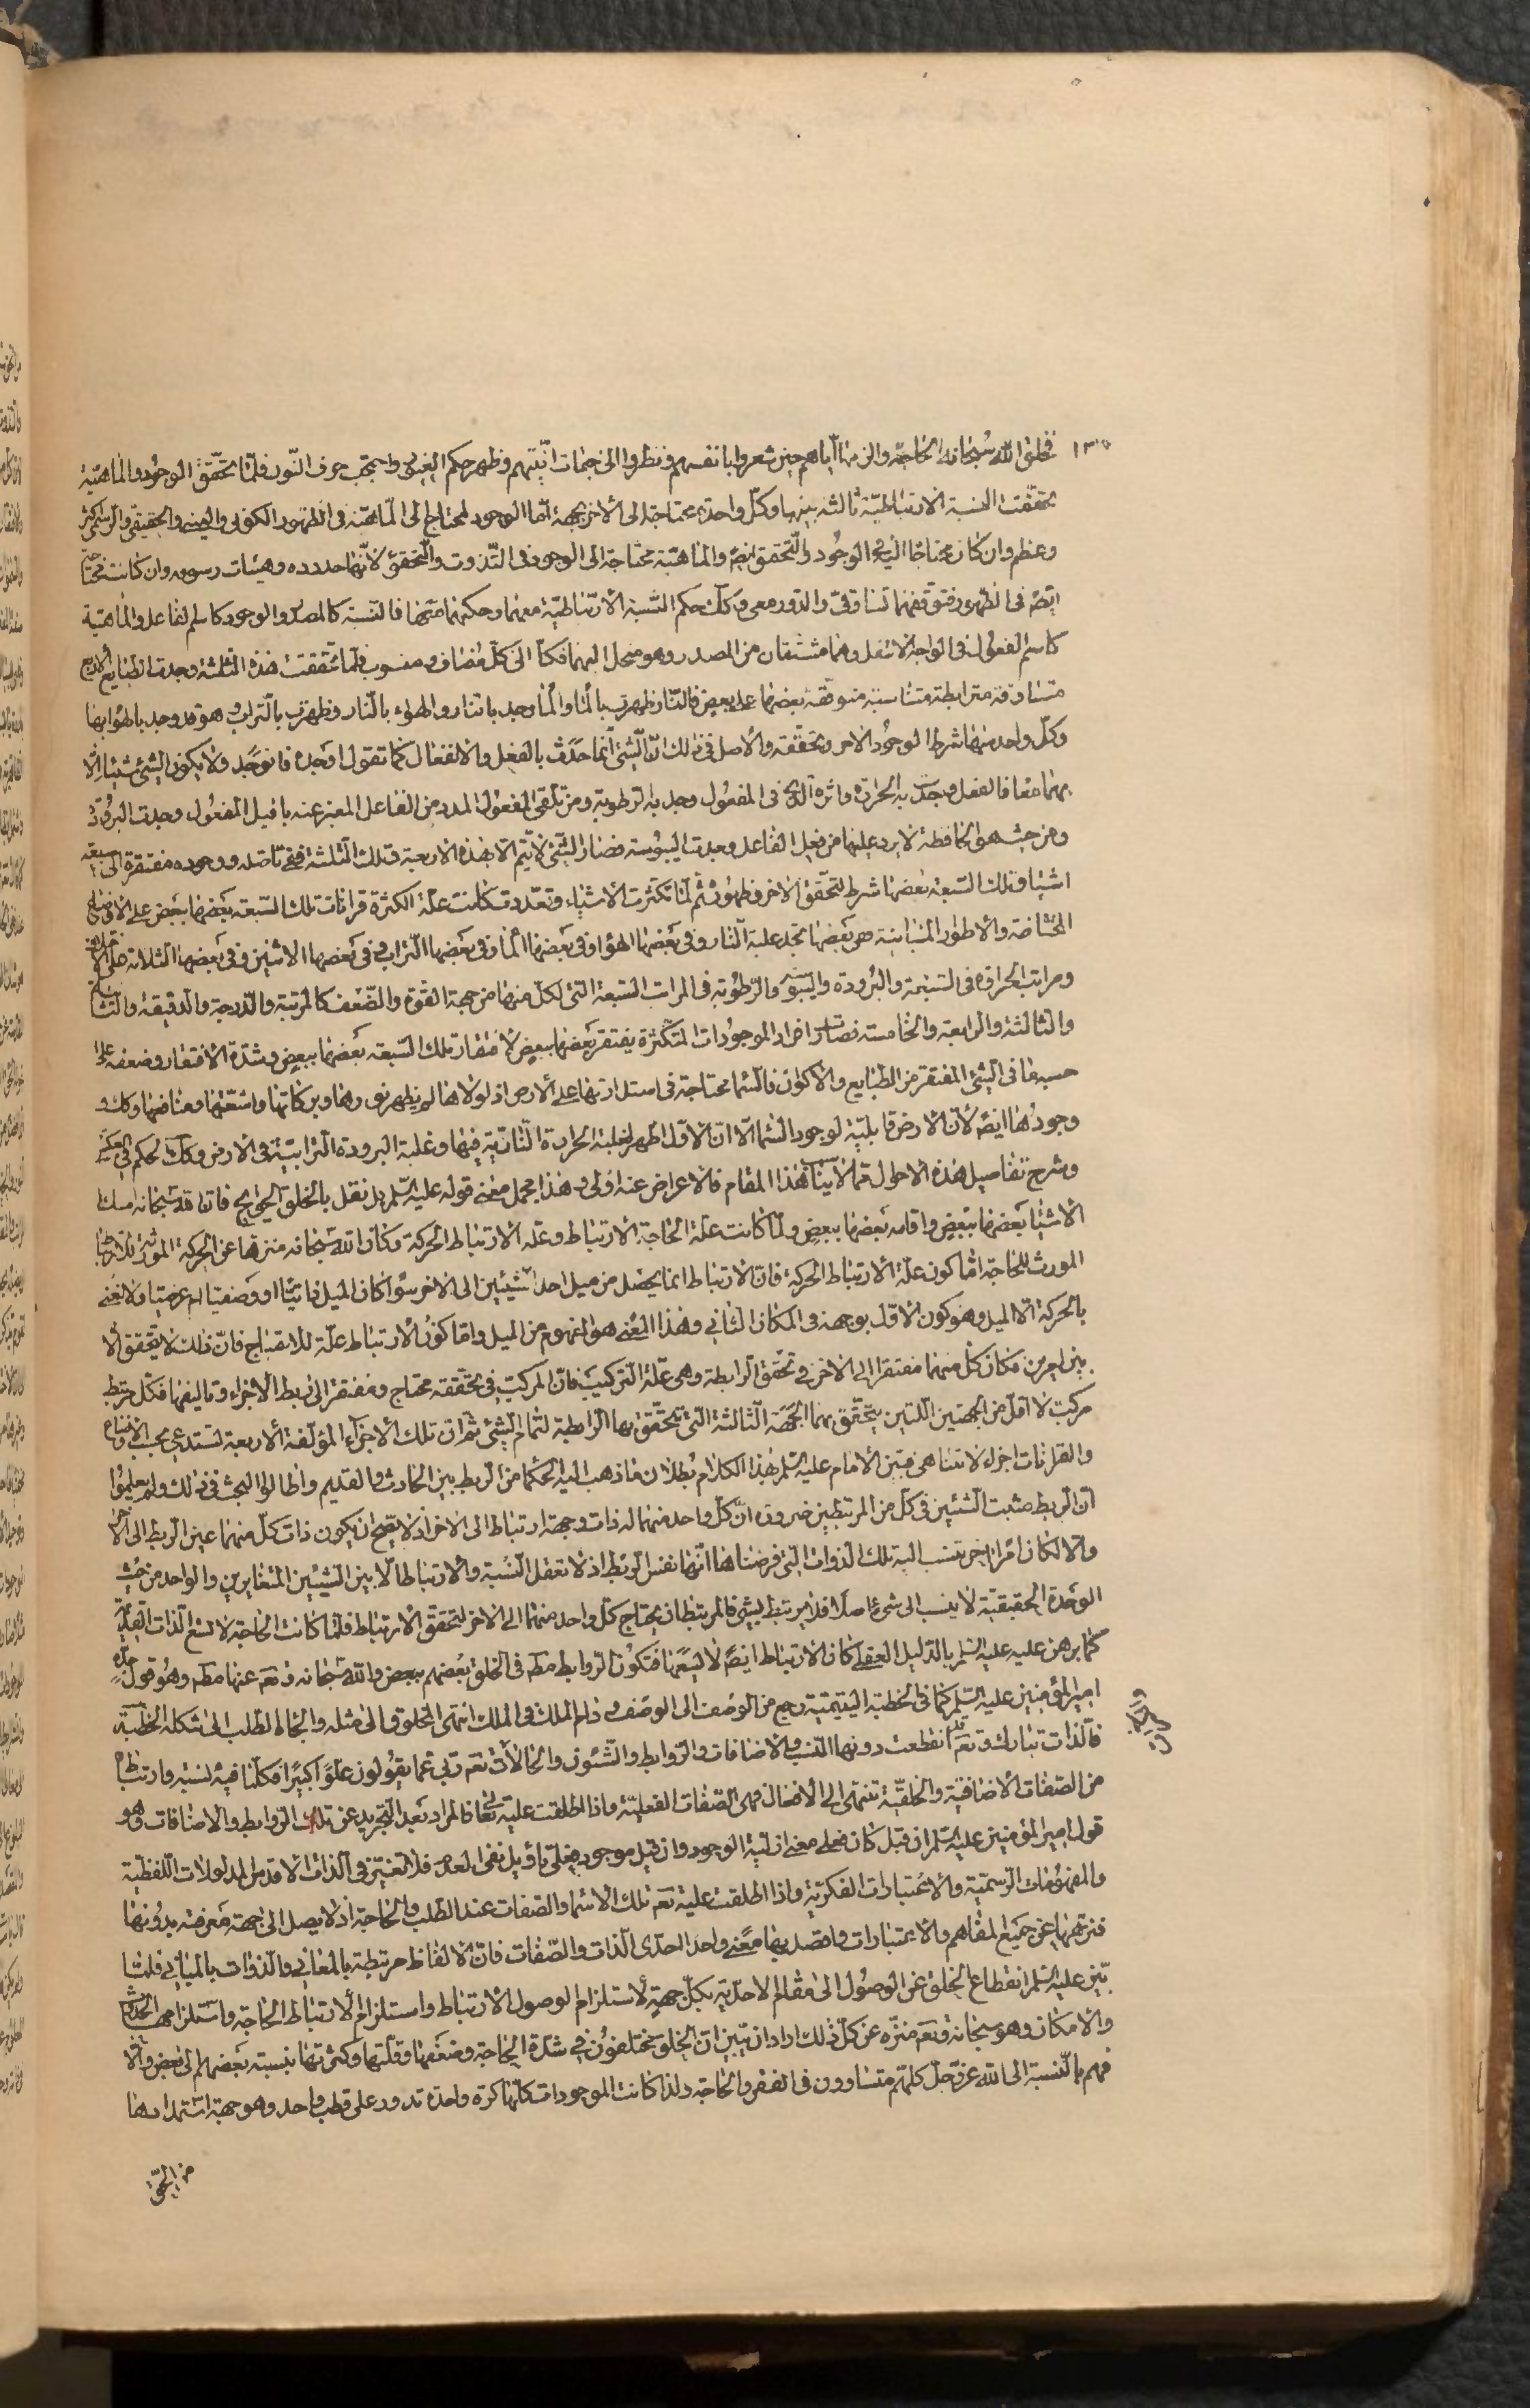 ١٣٠
فخلق الله سبحانه الحاجة والزمها اياهم حين شعروا بانفسهم ونظروا الى جهات انيتهم وظهر حكم الغيوب واحتجب حرف النون فلما تحقق الوجود والماهية
تحققت النسبة الارتباطية ثالثة بينهما وكل واحدة محتاجة الى الاخر بجهة اما الوجود لمحتاج الى الماهية فى الظهور الكونى والعينى والحقيقى والرسمى كثر
وعظم وان كان محتاجا اليه فى الوجود والتحقق ايضا والماهية محتاجة الى الوجود فى التذوت والتحقق لانها حدوده وهيئات رسومه وان كانت محتاجة
ايضا فى الظهور وتوقفهما تساوقى والدور معى وكك حكم النسبة الارتباطية معهما وحكمهما معها فالنسبة كالمصدر والوجود كاسم الفاعل والماهية
كاسم المفعول فى الواجد الانفعل وهما مشتقان من المصدر وهو محل اليهما فكذا الى كل مضاف ومنسوب فلما تحققت هذه الثلثة وجدت الطبايع الاربع
متساوقة مترابطة متناسبة متوقفة بعضها على بعض فالنار ظهرت بالماء والماء وجد بالنار والهواء بالنار وظهرت بالتراب وهو قد وجد بالهواء بها
وكل واحد منهما شرط الوجود الاخر وتحققه والاصل فى ذلك ان الشئ انما حدث بالفعل والانفعال كما تقول اوجده فانوجد ولا يكون الشئ شيئا الا
بهما معا فالفعل وجدت به الحرارة واثره الذى فى المفعول وجد به الرطوبة ومن تلقى المفعول المدد من الفاعل المعبر عنه بافيل المفعول وجدت البرودة
ومن حيث هو الحافظة لا يرد عليها من فعل الفاعل وجدت اليبوسة فصار الشئ لا يتم الا بهذه الاربعة وتلك الثلثة ففى تاصله ووجوده مفتقرة الى سبعة
اشياء وتلك السبعة بعضها شرط لتحقق الاخر وظهوره ثم لما تكثرت الاشياء وتعددت كانت علة الكثرة قرانات تلك السبعة بعضها ببعض على الاوضاع
المختلفة والاطوار المتباينة هى بعضها تجد غلبة النار وفى بعضها الهواء وفى بعضها الماء وفى بعضها التراب وفى بعضها الاثنين وفى بعضها الثلاثة على
ومراتب الحرارة فى السبعة والبرودة واليبوسة والرطوبة فى المراتب السبعة التى لكل منها من جهة القوة والضعف كالمرتبة والدرجة والدقيقة والثانية
والثالثة والرابعة والخامسة فصارت افراد الموجودات المتكثرة يفتقر بعضها ببعض لافتقار تلك السبعة بعضها ببعض وشدة الافتقار وضعفه على
حسبها فى الشئ المفتقر من الطبايع والاكوان فالسماء محتاجة فى استدارتها على الارض اذ لولاها لم يظهر نورها وبركاتها واشعتها ومنافعها وكك
وجودها ايضا لان الارض قابلية لوجود السماء الا ان الاول اظهر لغلبة الحرارة النارية فيها وغلبة البرودة الترابية فى الارض وكك الحكم فى العكس
وشرح تفاصيل هذه الاحوال مما لا يناسب هذا المقام فالاعراض عنه اولى وهذا مجمل معنى قوله عليه السلم بل نقل بالخلق الحوايج فان الله سبحانه امسك
الاشياء بعضها ببعض واقامه بعضها ببعض ولما كانت علة الحاجة الارتباط وعلة الارتباط الحركة وكان الله سبحانه منزها عن الحركة المورثة للارتباط
المورث للحاجة اما كون علة الارتباط الحركة فان الارتباط انما يحصل من ميل احد الشيئين الى الاخر سواء كان الميل ذاتيا او وصفيا ام عرضيا ولا نعنى
بالحركة الا الميل وهو كون الاول بوجهه فى المكان الثانى وهذا المعنى هو المفهوم من الميل واما كون الارتباط علة للاحتياج فان ذلك لا يتحقق الا
بين امرين فكان كل منهما مفتقرا الى الاخر فى تحقق الرابطة وهى علة التركيب فان المركب فى تحققه محتاج ومفتقر الى ربط الاجزاء وتاليفها فكل مرتبط
مركب لا اقل من الجهتين اللتين يتحقق بهما الجهة الثالثة التى تتحقق بها الرابطية لتمام الشئ ثم ان تلك الاجزاء المؤلفة الاربعة تستدعى بحسب الاوضاع
والقرانات اجزاء لا تتناهى فبين الامام عليه السلم بهذا الكلام بطلان ما ذهب اليه الحكماء من الربط بين الحادث والقديم واطالوا البحث فى ذلك ولم يعلموا
ان الربط مثبت الشيئين فى كل من المرتبطين ضرورة ان كل واحد منهما له ذات وجهة ارتباط الى الاخر اذ لا يصح ان يكون ذات كل منهما عين الربط الى الاخر
والا لكان امرا اخر تنسب اليه تلك الذوات التى فرضناها انها نفس الربط اذ لا تعقل النسبة والارتباط الا بين الشيئين المتغايرين والواحد من حيث
الوحدة الحقيقية لا ينسب الى شئ اصلا فلا يرتبط بشئ فالمرتبطان يحتاج كل واحد منهما الى الاخر لتحقق الارتباط فلما كانت الحاجة لا تسع الذات القديمة
كما برهن عليه عليه السلم بالدليل العقلى كان الارتباط ايضا لا يسعها فتكون الروابط منهم فى الخلق بعضهم ببعض والله سبحانه وتعالى عنها وهو قول جده
امير المؤمنين عليه السلم كما فى الخطبة اليتيمية رجع من الوصف الى الوصف ودام الملك فى الملك انتهى المخلوق الى مثله والجأه الطلب الى شكله الخطبة
فالذات تبارك وتعالى قد انقطعت دونها النسب والاضافات والروابط والشئون والحالات تعالى ربى عما يقولون علوا كبيرا فكلما فيه نسبة وارتباط
من الصفات الاضافية والخلقية تنتهى الى الافعال وهى الصفات الفعلية واذا اطلقت عليه تعالى فالمراد بعد التجريد عن تلك الروابط والاضافات وهو
قول امير المؤمنين عليه السلم ان قيل كان فعلى معنى ازلية الوجود وان قيل موجود فعلى تأويل نفى العدم فلا تعنين فى الذات الاقدس المدلولات اللفظية
والمفهومات الرسمية والاعتبارات الفكرية واذا اطلقت عليه تعالى تلك الاسماء والصفات عند الطلب والحاجة اذ لا يصل الى جهة معرفته بدونها
فنزهها عن جميع المفاهيم والاعتبارات واقصد بها معنى واحد احدى الذات والصفات فان الالفاظ مرتبطة بالمعانى والذوات بالمبانى فلما
بين عليه السلم انقطاع الخلق عن الوصول الى مقام الاحدية بكل جهة لاستلزام الوصول الارتباط واستلزام الارتباط الحاجة واستلزامها الحدوث
والامكان وهو سبحانه وتعالى منزه عن كل ذلك اراد ان يبين ان الخلق مختلفون فى شدة الحاجة وضعفها وقلتها وكثرتها بنسبة بعضهم الى بعض والا
فهم بالنسبة الى الله عز وجل كلهم متساوون فى الفقر والحاجة ولذا كانت الموجودات كلها كرة واحدة تدور على قطب واحد وهو جهة استمدادها
من الحق